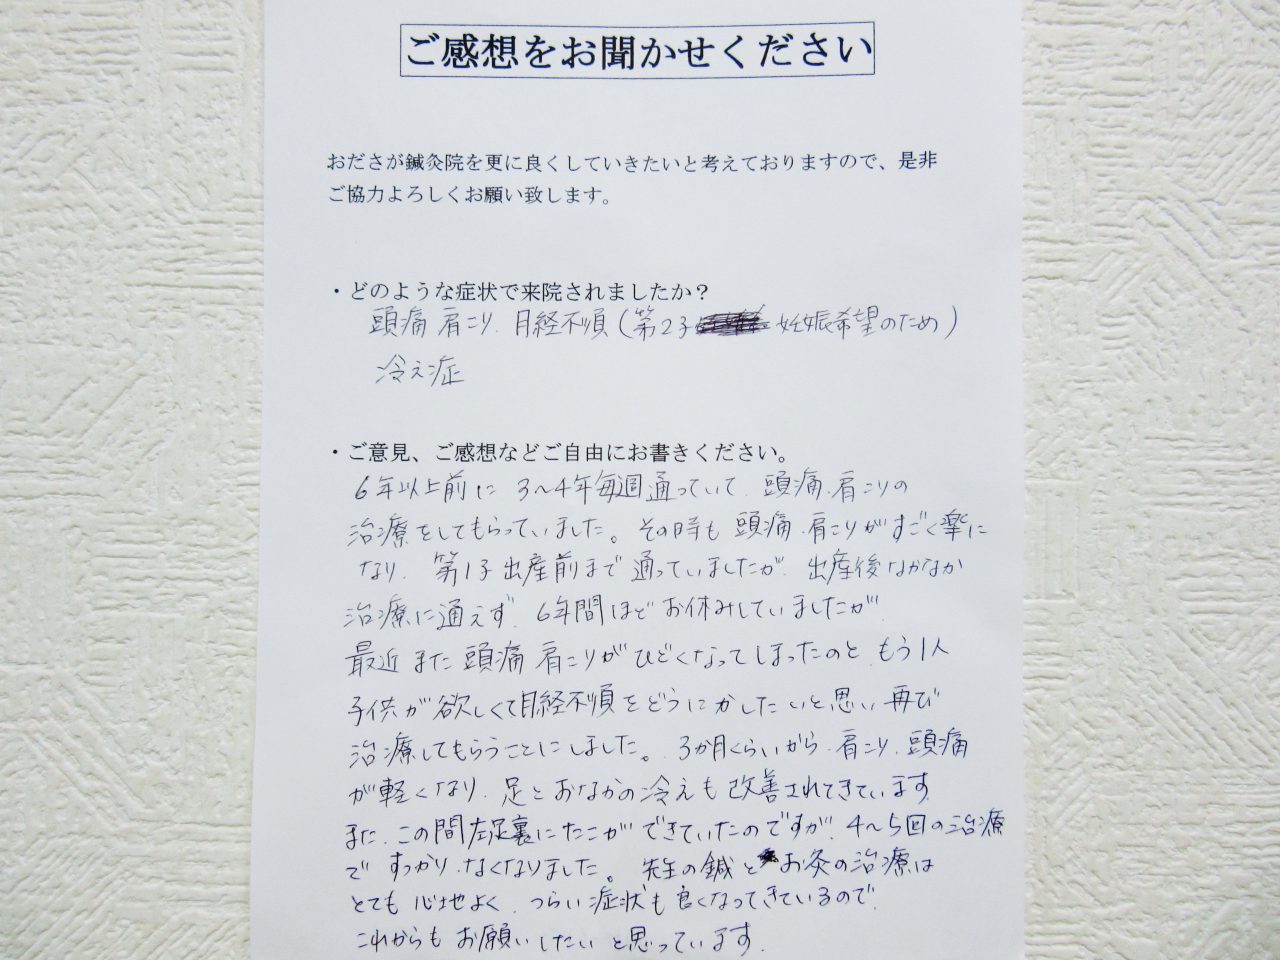 ご感想をお聞かせください
おださが鍼灸院を更に良くしていきたいと考えておりますので、是非
ご協力よろしくお願い致します。
・どのような症状で来院されましたか？
頭痛 肩こり、月経不順(第2子 妊娠希望のため)
冷え症
・ご意見、ご感想などご自由にお書きください。
6年以上前に 3～4年毎週通っていて、頭痛、肩こりの
治療をしてもらっていました。その時も 頭痛、肩こりがすごく楽に
なり、第1子出産前まで通っていましたが、出産後なかなか
治療に通えず、6年間ほどお休みしていましたが
最近また頭痛 肩こりがひどくなってしまったのと、もう1人
子供が欲しくて月経不順をどうにかしたいと思い再び
治療してもらうことにしました。3か月くらいから、肩こり、頭痛
が軽くなり、足とおなかの冷えも改善されてきています
また、この間左足裏にたこができていたのですが、4～5回の治療
ですっかりなくなりました。先生の鍼とお灸の治療は
とても心地よく、つらい症状も良くなってきているので、
これからもお願いしたいと思っています。